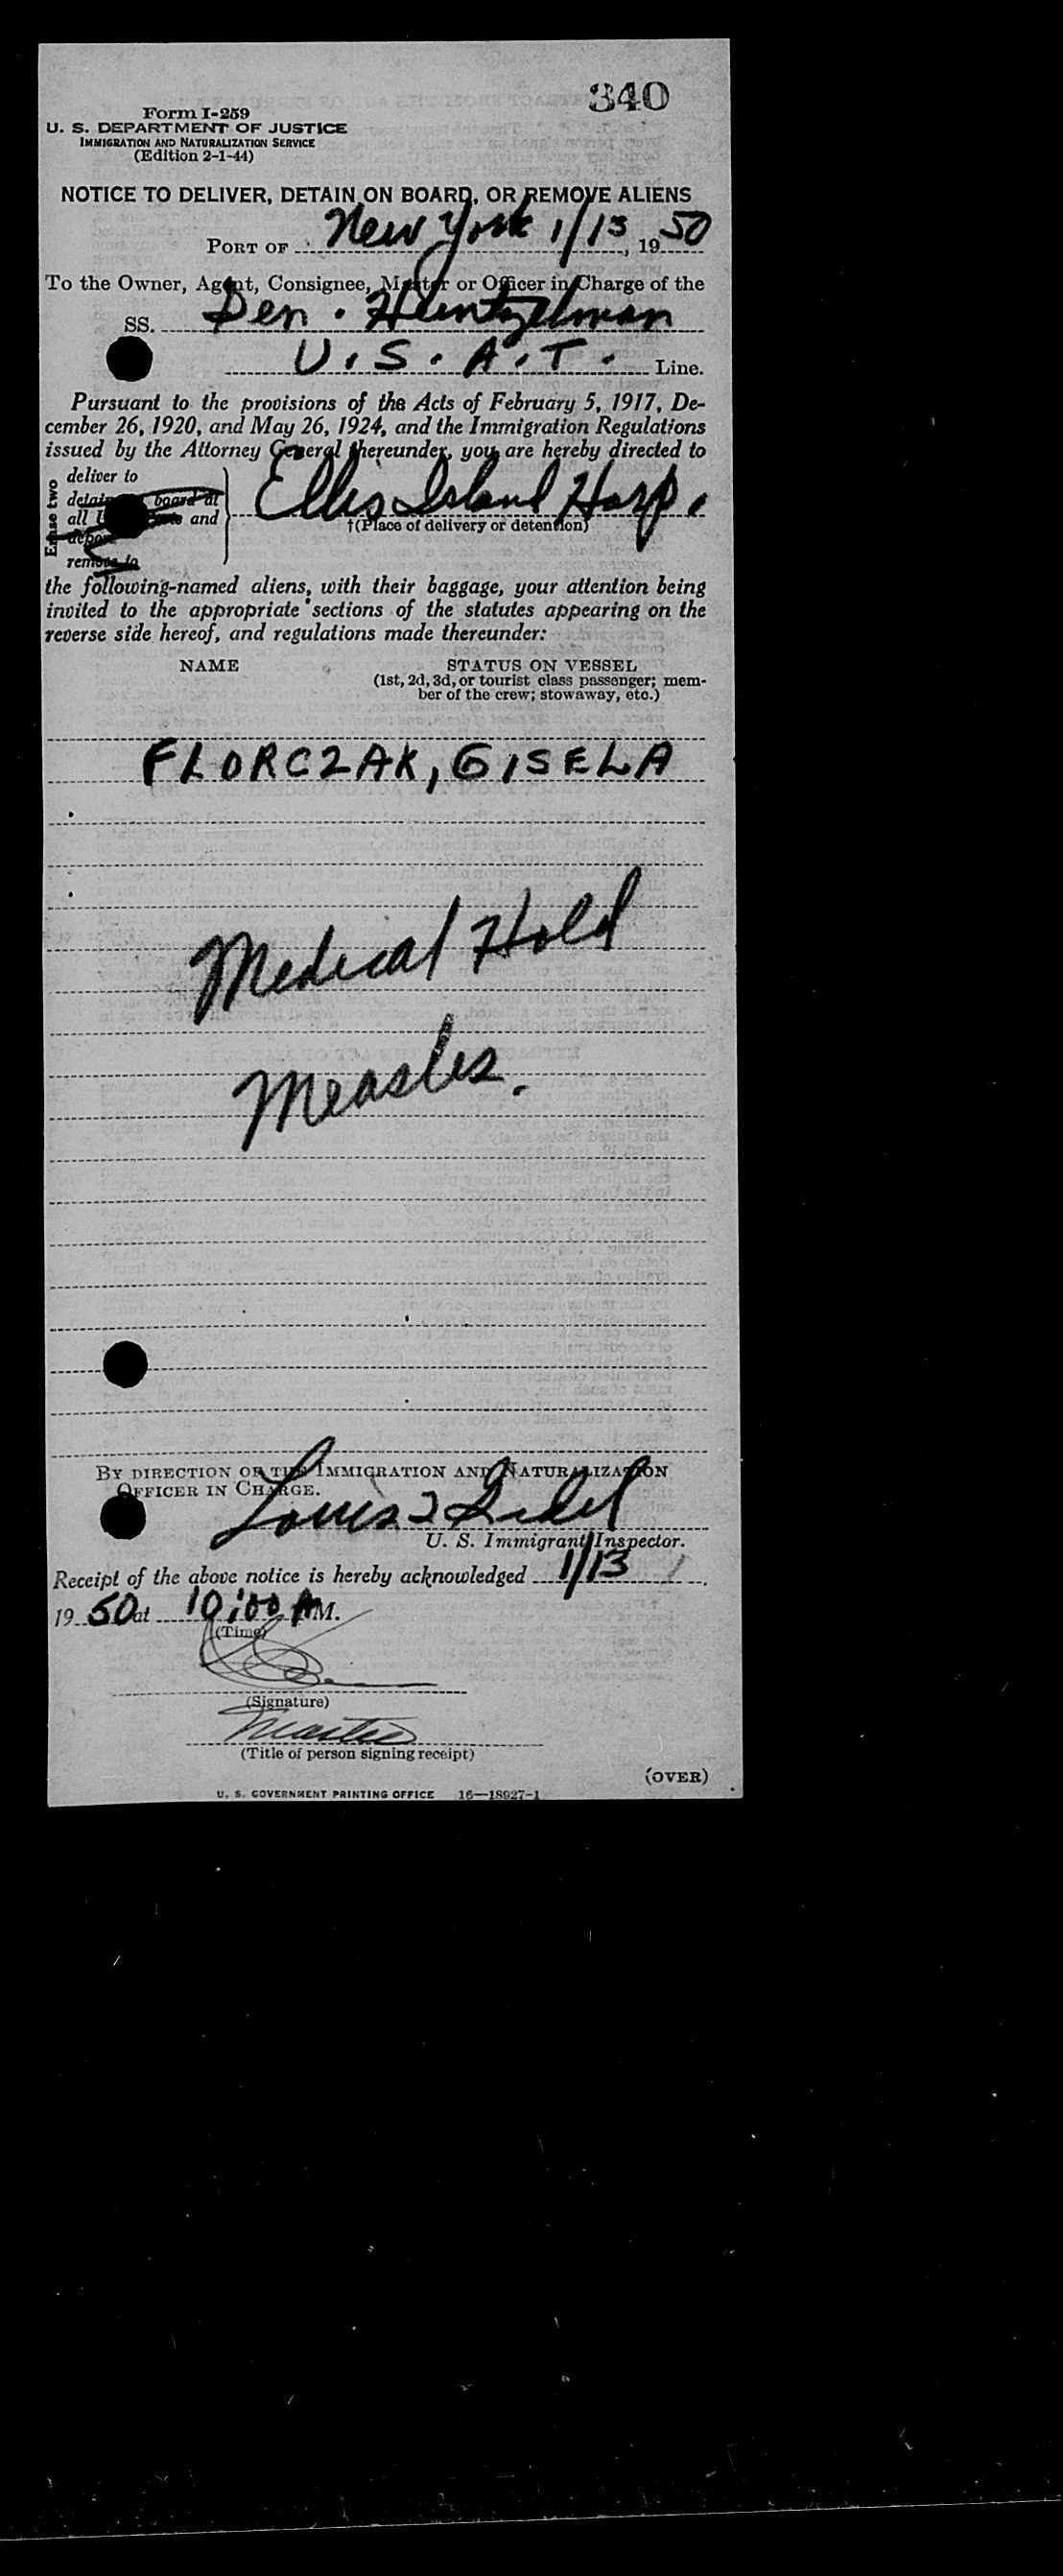 340
Form I-259
U. S. DEPARTMENT OF JUSTICE
IMMIGRATION AND NATURALIZATION SERVICE
(Edition 2-1-44)
NOTICE TO DELIVER, DETAIN ON BOARD, OR REMOVE ALIENS
PORT OF New York 1/13, 1950
To the Owner, Agent, Consignee, Master or Officer in Charge of the
SS. Gen. Heintzelman
U.S.A.T. Line.
Pursuant to the provisions of the Acts of February 5, 1917, De-
cember 26, 1920, and May 26, 1924, and the Immigration Regulations
issued by the Attorney General thereunder, you are hereby directed to
Erase two
deliver to
detain board at
all and
remove to
Ellis Island Hosp.
†(Place of delivery or detention)
the following-named aliens, with their baggage, your attention being
invited to the appropriate sections of the statutes appearing on the
reverse side hereof, and regulations made thereunder:
NAME STATUS ON VESSEL
(1st, 2d, 3d, or tourist class passenger; mem-
ber of the crew; stowaway, etc.)
FLORCZAK, GISELA
Medical Hold
Measles.
BY DIRECTION OF THE IMMIGRATION AND NATURALIZATION
OFFICER IN CHARGE.
Louis
U. S. Immigrant Inspector.
Receipt of the above notice is hereby acknowledged 1/13,
1950 at 10:00 AM.
(Time)
(Signature)
Master
(Title of person signing receipt)
(OVER)
U. S. GOVERNMENT PRINTING OFFICE 16—18927-1